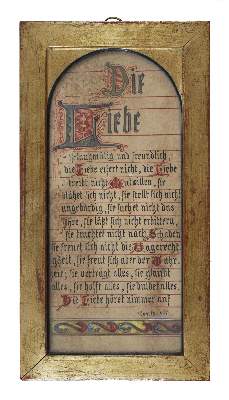 Die
Liebe
ist langmütig und freundlich,
die Liebe eifert nicht, die Liebe
treibt nicht Mutwillen, sie
blähet sich nicht, sie stellt sich nicht
ungebärdig, sie suchet nicht das
Ihre, sie läßt sich nicht erbittern,
sie trachtet nicht nach Schaden
sie freuet sich nicht die Ungerecht
igkeit, sie freut sich aber der Wahr
heit; sie verträgt alles, sie glaubt
alles, sie hofft alles, sie duldet alles.
Die Liebe höret nimmer auf